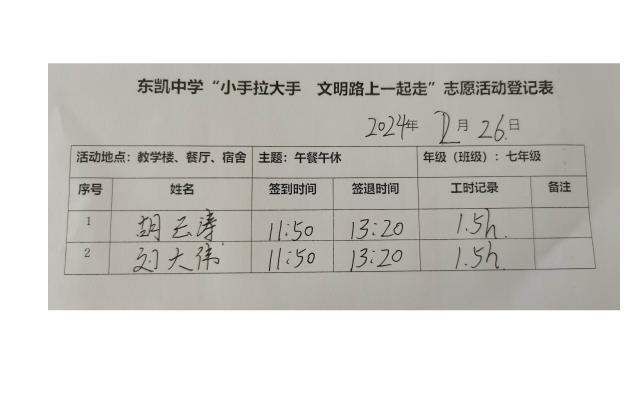 东凯中学“小手拉大手 文明路上一起走”志愿活动登记表
2024年 12月 26日
活动地点：教学楼、餐厅、宿舍 主题：午餐午休 年级（班级）：七年级
序号 姓名 签到时间 签退时间 工时记录 备注
1 胡云涛 11:50 13:20 1.5h
2 刘大伟 11:50 13:20 1.5h